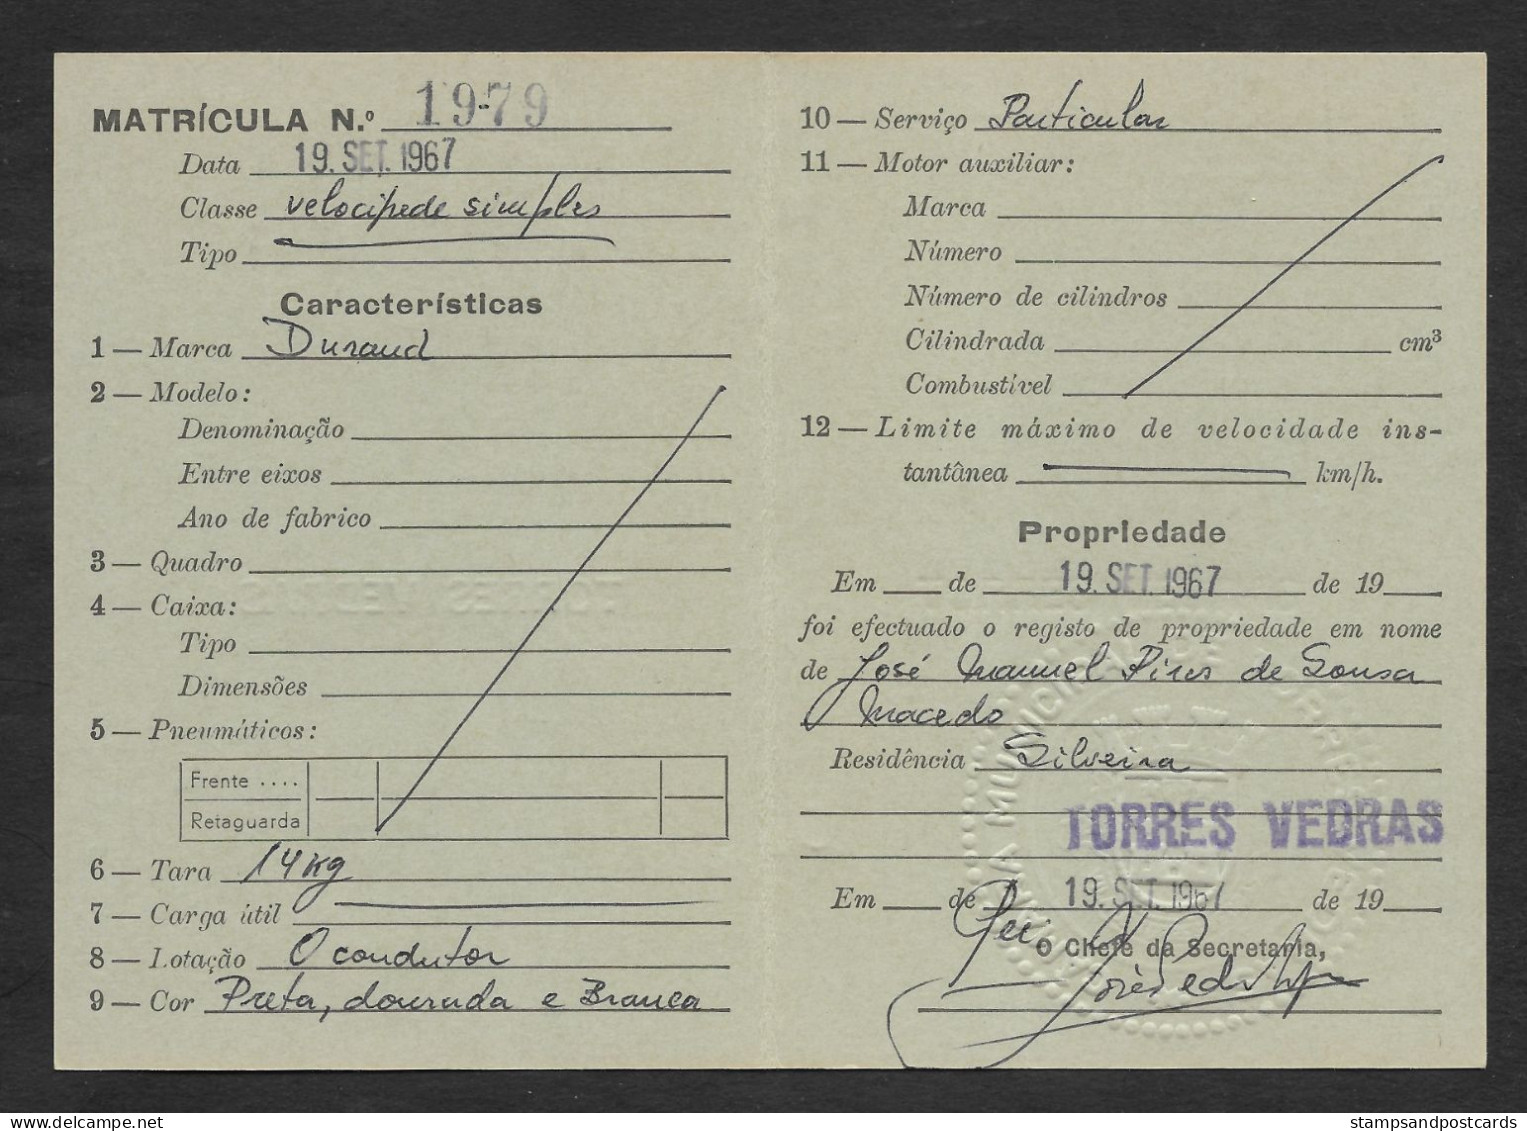 MATRÍCULA N.º 1979
Data 19. SET. 1967
Classe velocípede simples
Tipo
Características
1 — Marca Durand
2 — Modelo:
Denominação
Entre eixos
Ano de fabrico
3 — Quadro
4 — Caixa:
Tipo
Dimensões
5 — Pneumáticos:
Frente ....
Retaguarda
6 — Tara 14 Kg
7 — Carga útil
8 — Lotação O condutor
9 — Cor Preta, dourada e Branca
10 — Serviço Particular
11 — Motor auxiliar:
Marca
Número
Número de cilindros
Cilindrada cm³
Combustível
12 — Limite máximo de velocidade ins-
tantânea km/h.
Propriedade
Em de 19. SET. 1967 de 19
foi efectuado o registo de propriedade em nome
de José Manuel Pires de Sousa
Macedo
Residência Silveira
TORRES VEDRAS
Em de 19. SET. 1967 de 19
O Chefe da Secretaria,
stampsandpostcards
hipostcard.com